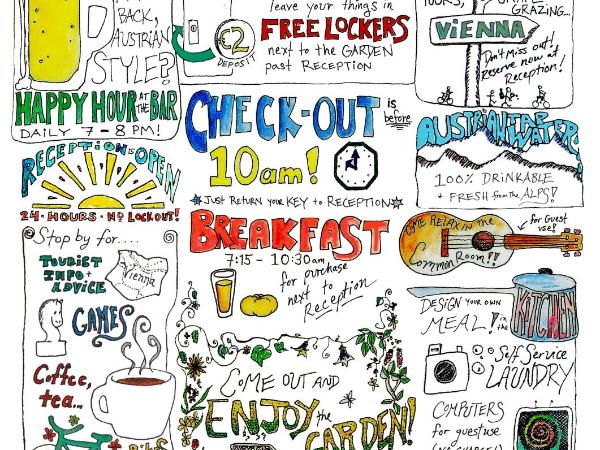 BACK,
AUSTRIAN
STYLE?
HAPPY HOUR AT THE BAR
DAILY 7 - 8 PM!
RECEPTION IS OPEN
24 - HOURS - NO LOCKOUT!
Stop by for....
TOURIST
INFO +
ADVICE
Vienna
GAMES
Coffee,
tea...
BIKES
leave your things in
€2
DEPOSIT
FREE LOCKERS
next to the GARDEN
past RECEPTION
CHECK-OUT is before
10am!
JUST RETURN YOUR KEY TO RECEPTION
BREAKFAST
7:15 - 10:30am
for purchase
next to
Reception
COME OUT AND
ENJOY the
GARDEN!
TOURS,
GRAPE
GRAZING...
VIENNA
Don't miss out!
Reserve now at
Reception!
AUSTRIAN TAP WATER
100% DRINKABLE
+ FRESH from The ALPS!
COME RELAX IN the
Common Room!!
for Guest
use!
DESIGN YOUR OWN
MEAL! in the
KITCHEN
Self Service
LAUNDRY
COMPUTERS
for guest use
(NO CHARGE!)